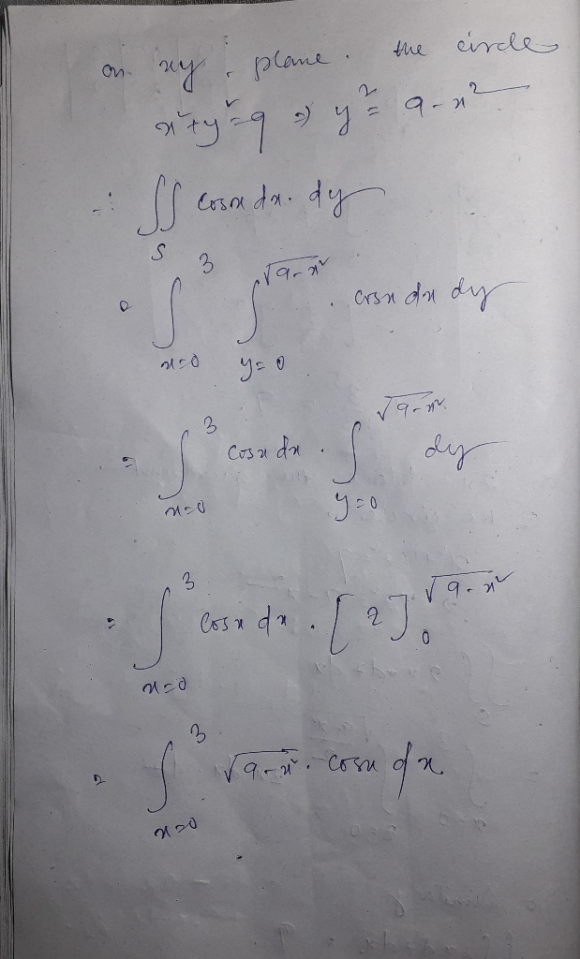 on xy plane. the circle
x²+y²=9 ⇒ y² = 9-x²
∴ ∬_S cosx dx. dy
= ∫_{x=0}^{3} ∫_{y=0}^{√(9-x²)} . cosx dx dy
= ∫_{x=0}^{3} cosx dx . ∫_{y=0}^{√(9-x²)} dy
= ∫_{x=0}^{3} cosx dx . [2]_0^{√(9-x²)}
= ∫_{x=0}^{3} √(9-x²) . cosx dx.